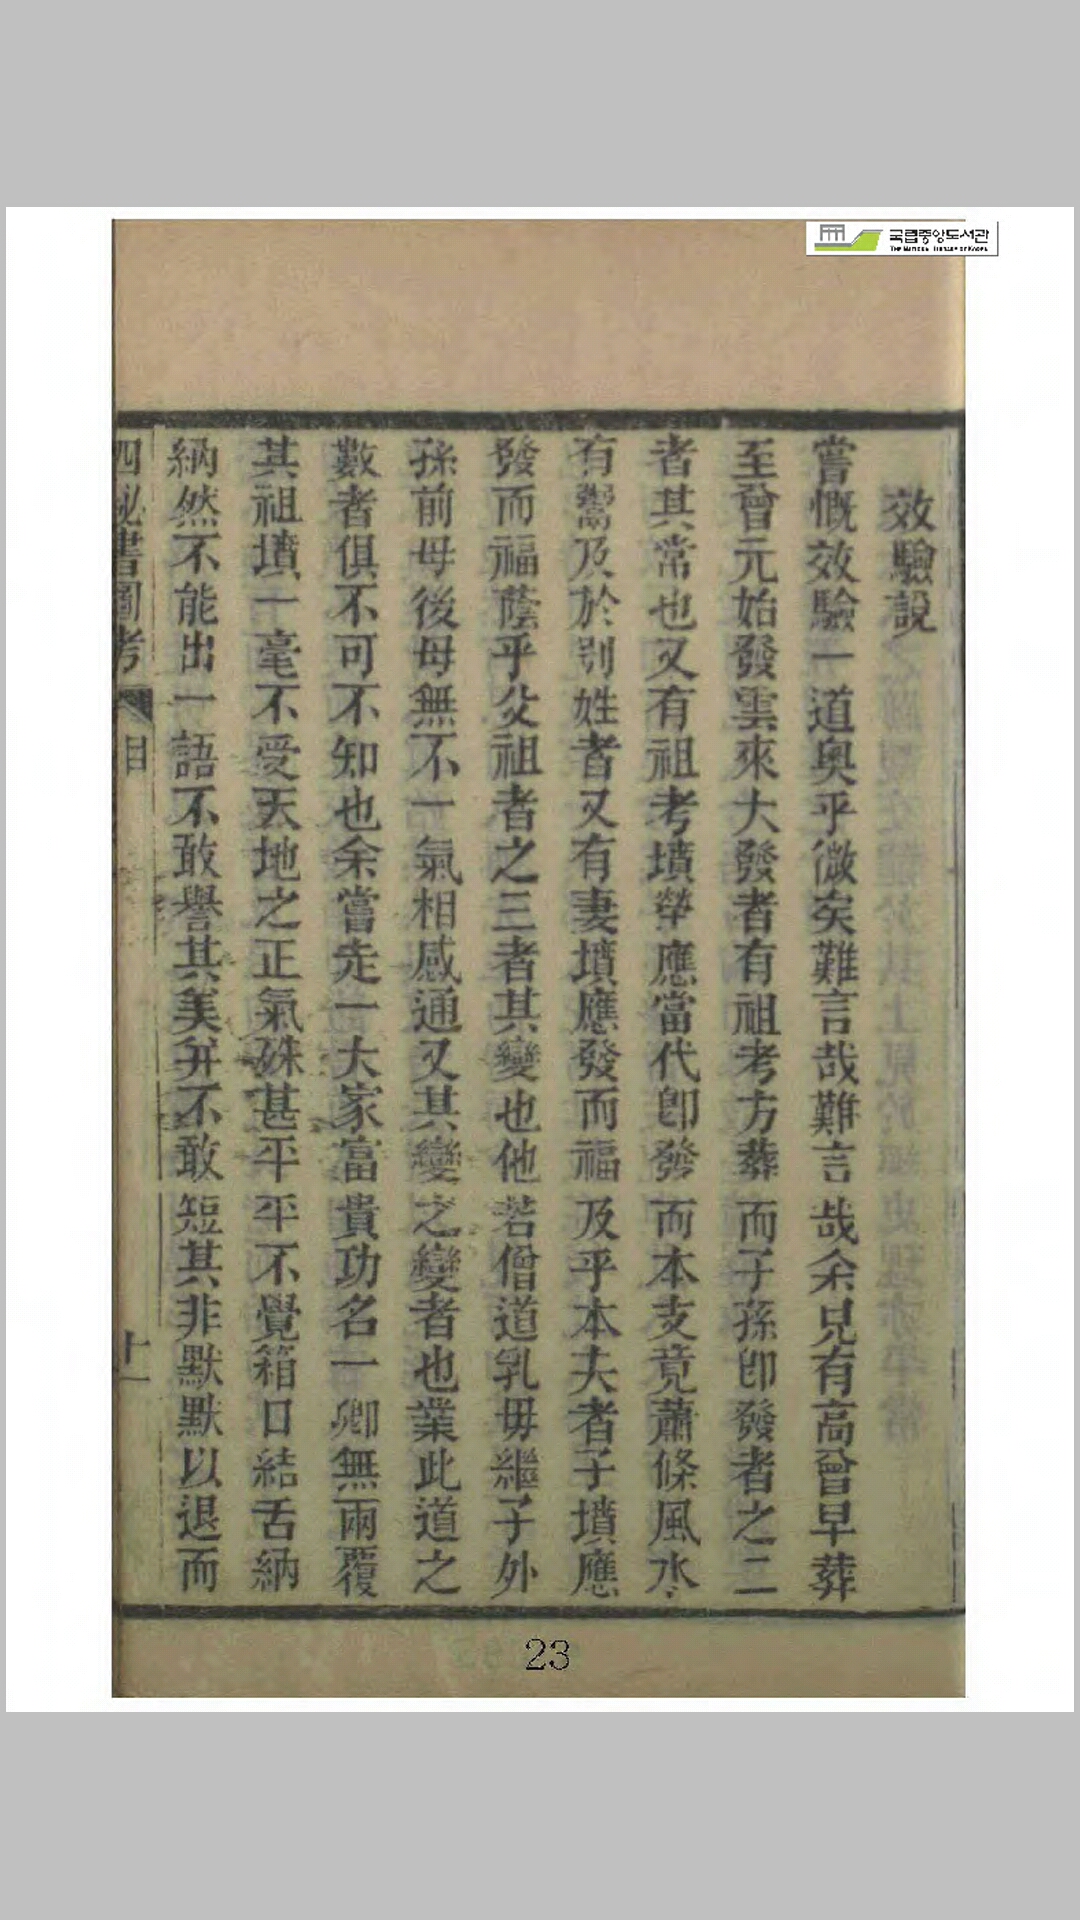 국립중앙도서관
THE NATIONAL LIBRARY OF KOREA
效驗說
嘗慨效驗一道奧乎微矣難言哉難言哉余見有高曾早葬
至曾元始發雲來大發者有祖考方葬而子孫卽發者之二
者其常也又有祖考墳塋應當代卽發而本支竟蕭條風水
有鬻及於別姓者又有妻墳應發而福及乎本夫者子墳應
發而福蔭乎父祖者之三者其變也他若僧道乳母繼子外
孫前母後母無不一氣相感通又其變之變者也業此道之
數者俱不可不知也余嘗走一大家富貴功名一卿無兩覆
其祖墳一毫不受天地之正氣殊甚平平不覺箝口結舌納
納然不能出一語不敢譽其美幷不敢短其非默默以退而
四秘書圖考 目 十一
23